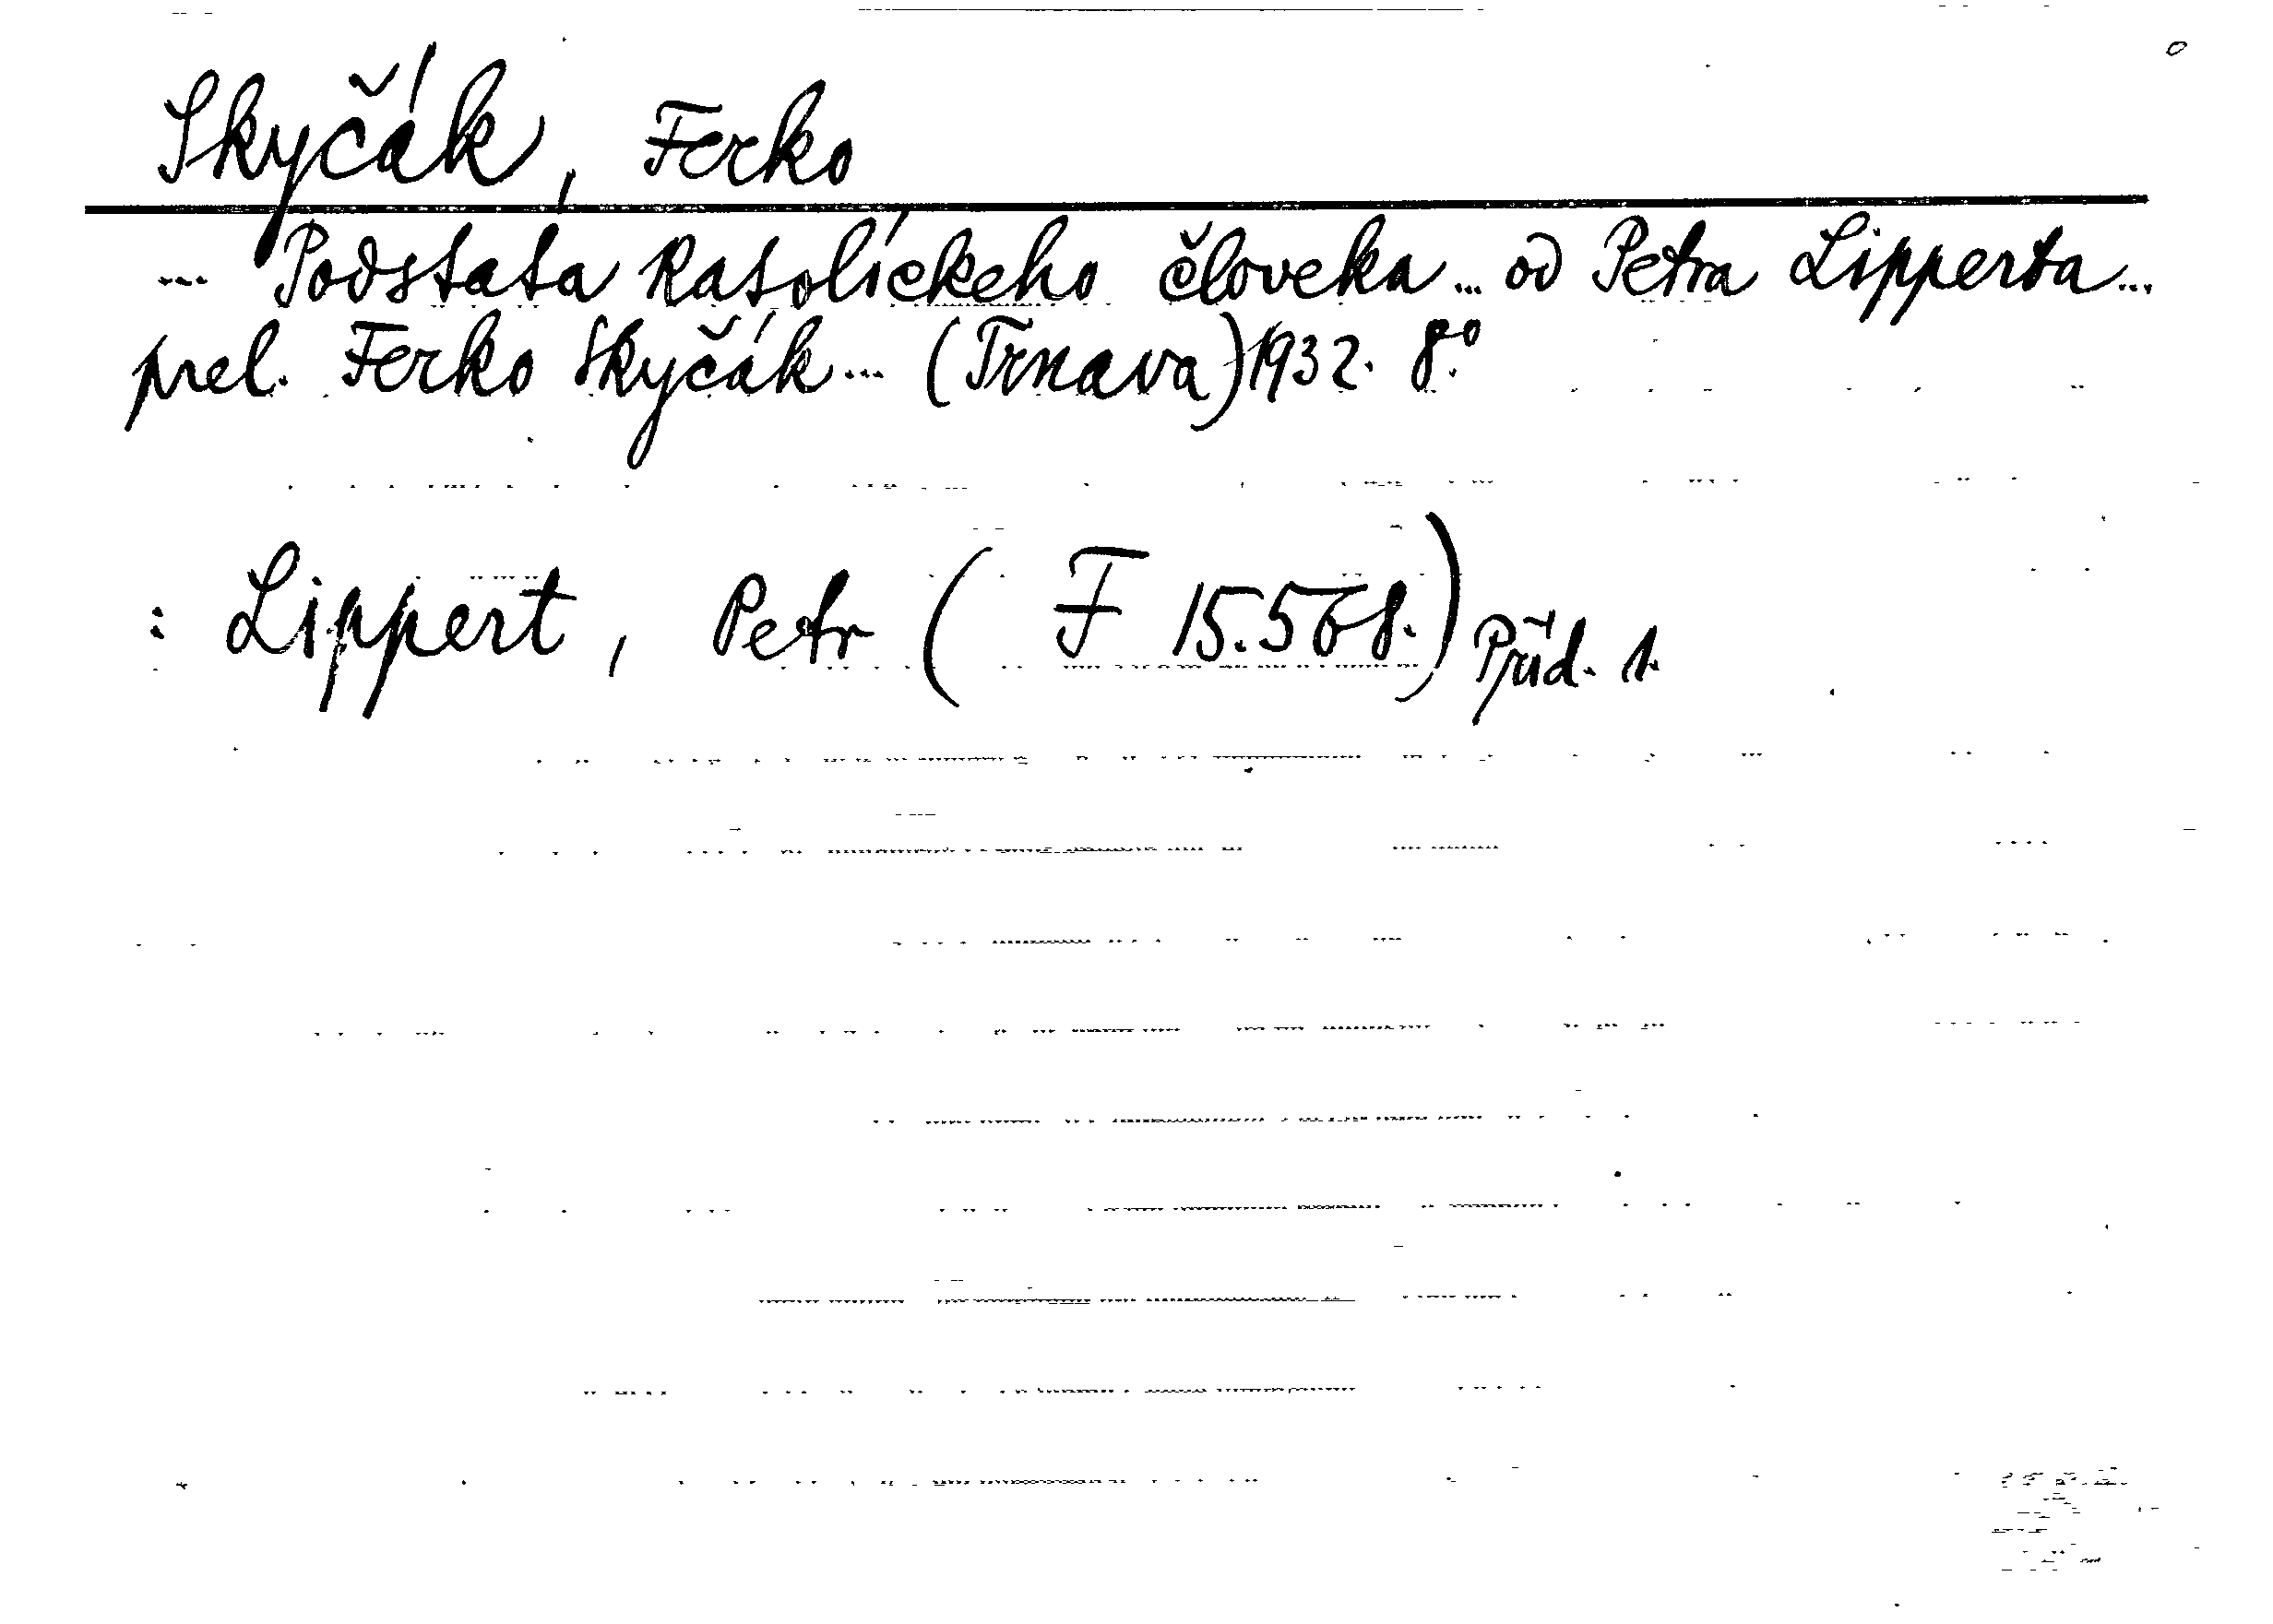 Skyčák, Ferko
... Podstata katolíckeho človeka ... od Petra Lipperta ...
prel. Ferko Skyčák ... (Trnava) 1932. 8.º
: Lippert, Petr ( F 15.568.) Přid. 1.